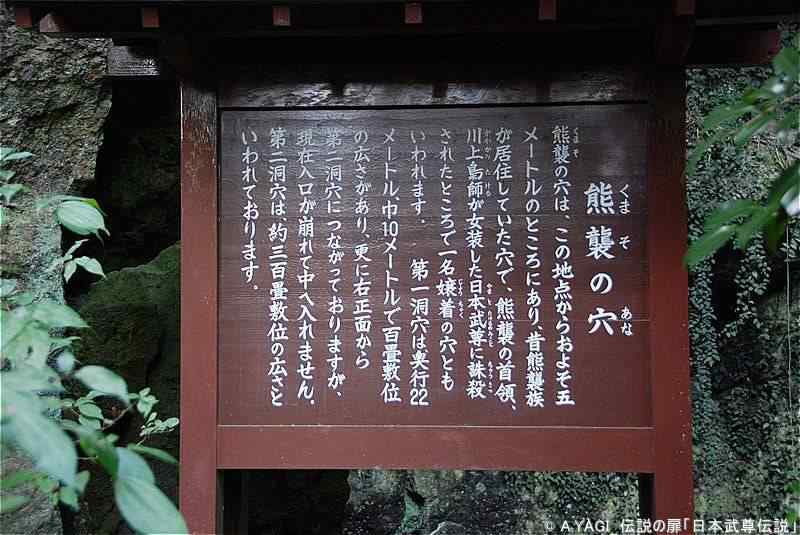 熊襲の穴
くまそ あな
熊襲の穴は、この地点からおよそ五
メートルのところにあり、昔熊襲族
が居住していた穴で、熊襲の首領、
川上梟師が女装した日本武尊に誅殺
されたところで一名嬢着の穴とも
いわれます。 第一洞穴は奥行22
メートル巾10メートルで百畳敷位
の広さがあり、更に右正面から
第二洞穴につながっておりますが、
現在入口が崩れて中へ入れません。
第二洞穴は約三百畳敷位の広さと
いわれております。
© A.YAGI 伝説の扉「日本武尊伝説」